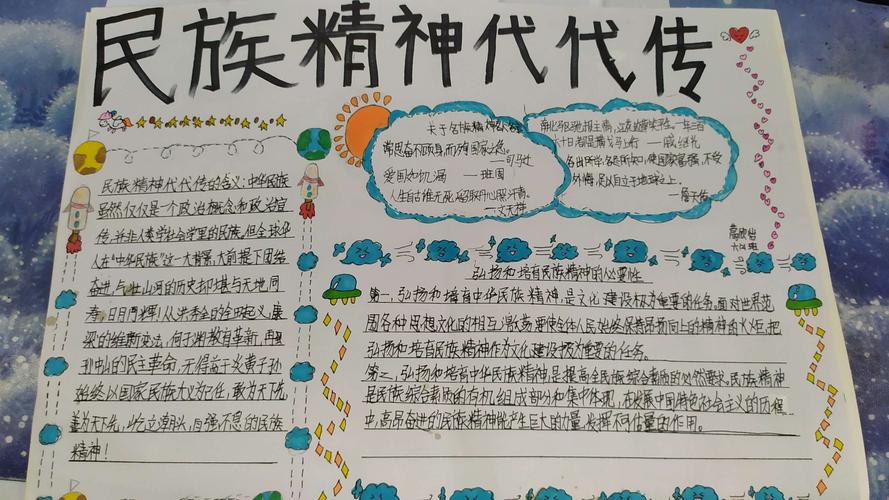 民族精神代代传
民族精神代代传的含义:中华民族
虽然仅仅是一个政治概念和政治宣
传,并非人类学社会学里的民族。但全球华
人在"中华民族"这一大背景,大前提下团结
奋进,与壮山河的历史却堪与天地同
寿,日月同辉!从洪秀全的金田起义,康
梁的维新变法,何子渊教育革新,再到
孙中山的民主革命,无得益于炎黄子孙
始终以国家民族大义为己任,敢为天下先,
善为天下先,屹立潮头,自强不息的民族
精神!
关于名族精神的名言
常思奋不顾身,而殉国家之急。
—司马迁
爱国如饥渴 —班固
人生自古谁无死,留取丹心照汗青。
—文天祥
南北驱驰报主情,江花边草笑平生。一年三百
六十日,都是横戈马上行 —戚继光
各出所学,各尽所知,使国家富强,不受
外侮,足以自立于地球之上。
—詹天佑
六(4)班
弘扬和培育民族精神的必要性
第一,弘扬和培育中华民族精神,是文化建设极为重要的任务。面对世界范
围各种思想文化的相互激荡,要使全体人民始终保持昂扬向上的精神的火炬,把
弘扬和培育民族精神作为文化建设极为重要的任务。
第二,弘扬和培育中华民族精神,是提高全民族综合素质的必然要求。民族精神
是民族综合素质的有机组成部分和集中体现,在发展中国特色社会主义的历程
中,高昂奋进的民族精神能产生巨大的力量,发挥不可估量的作用。